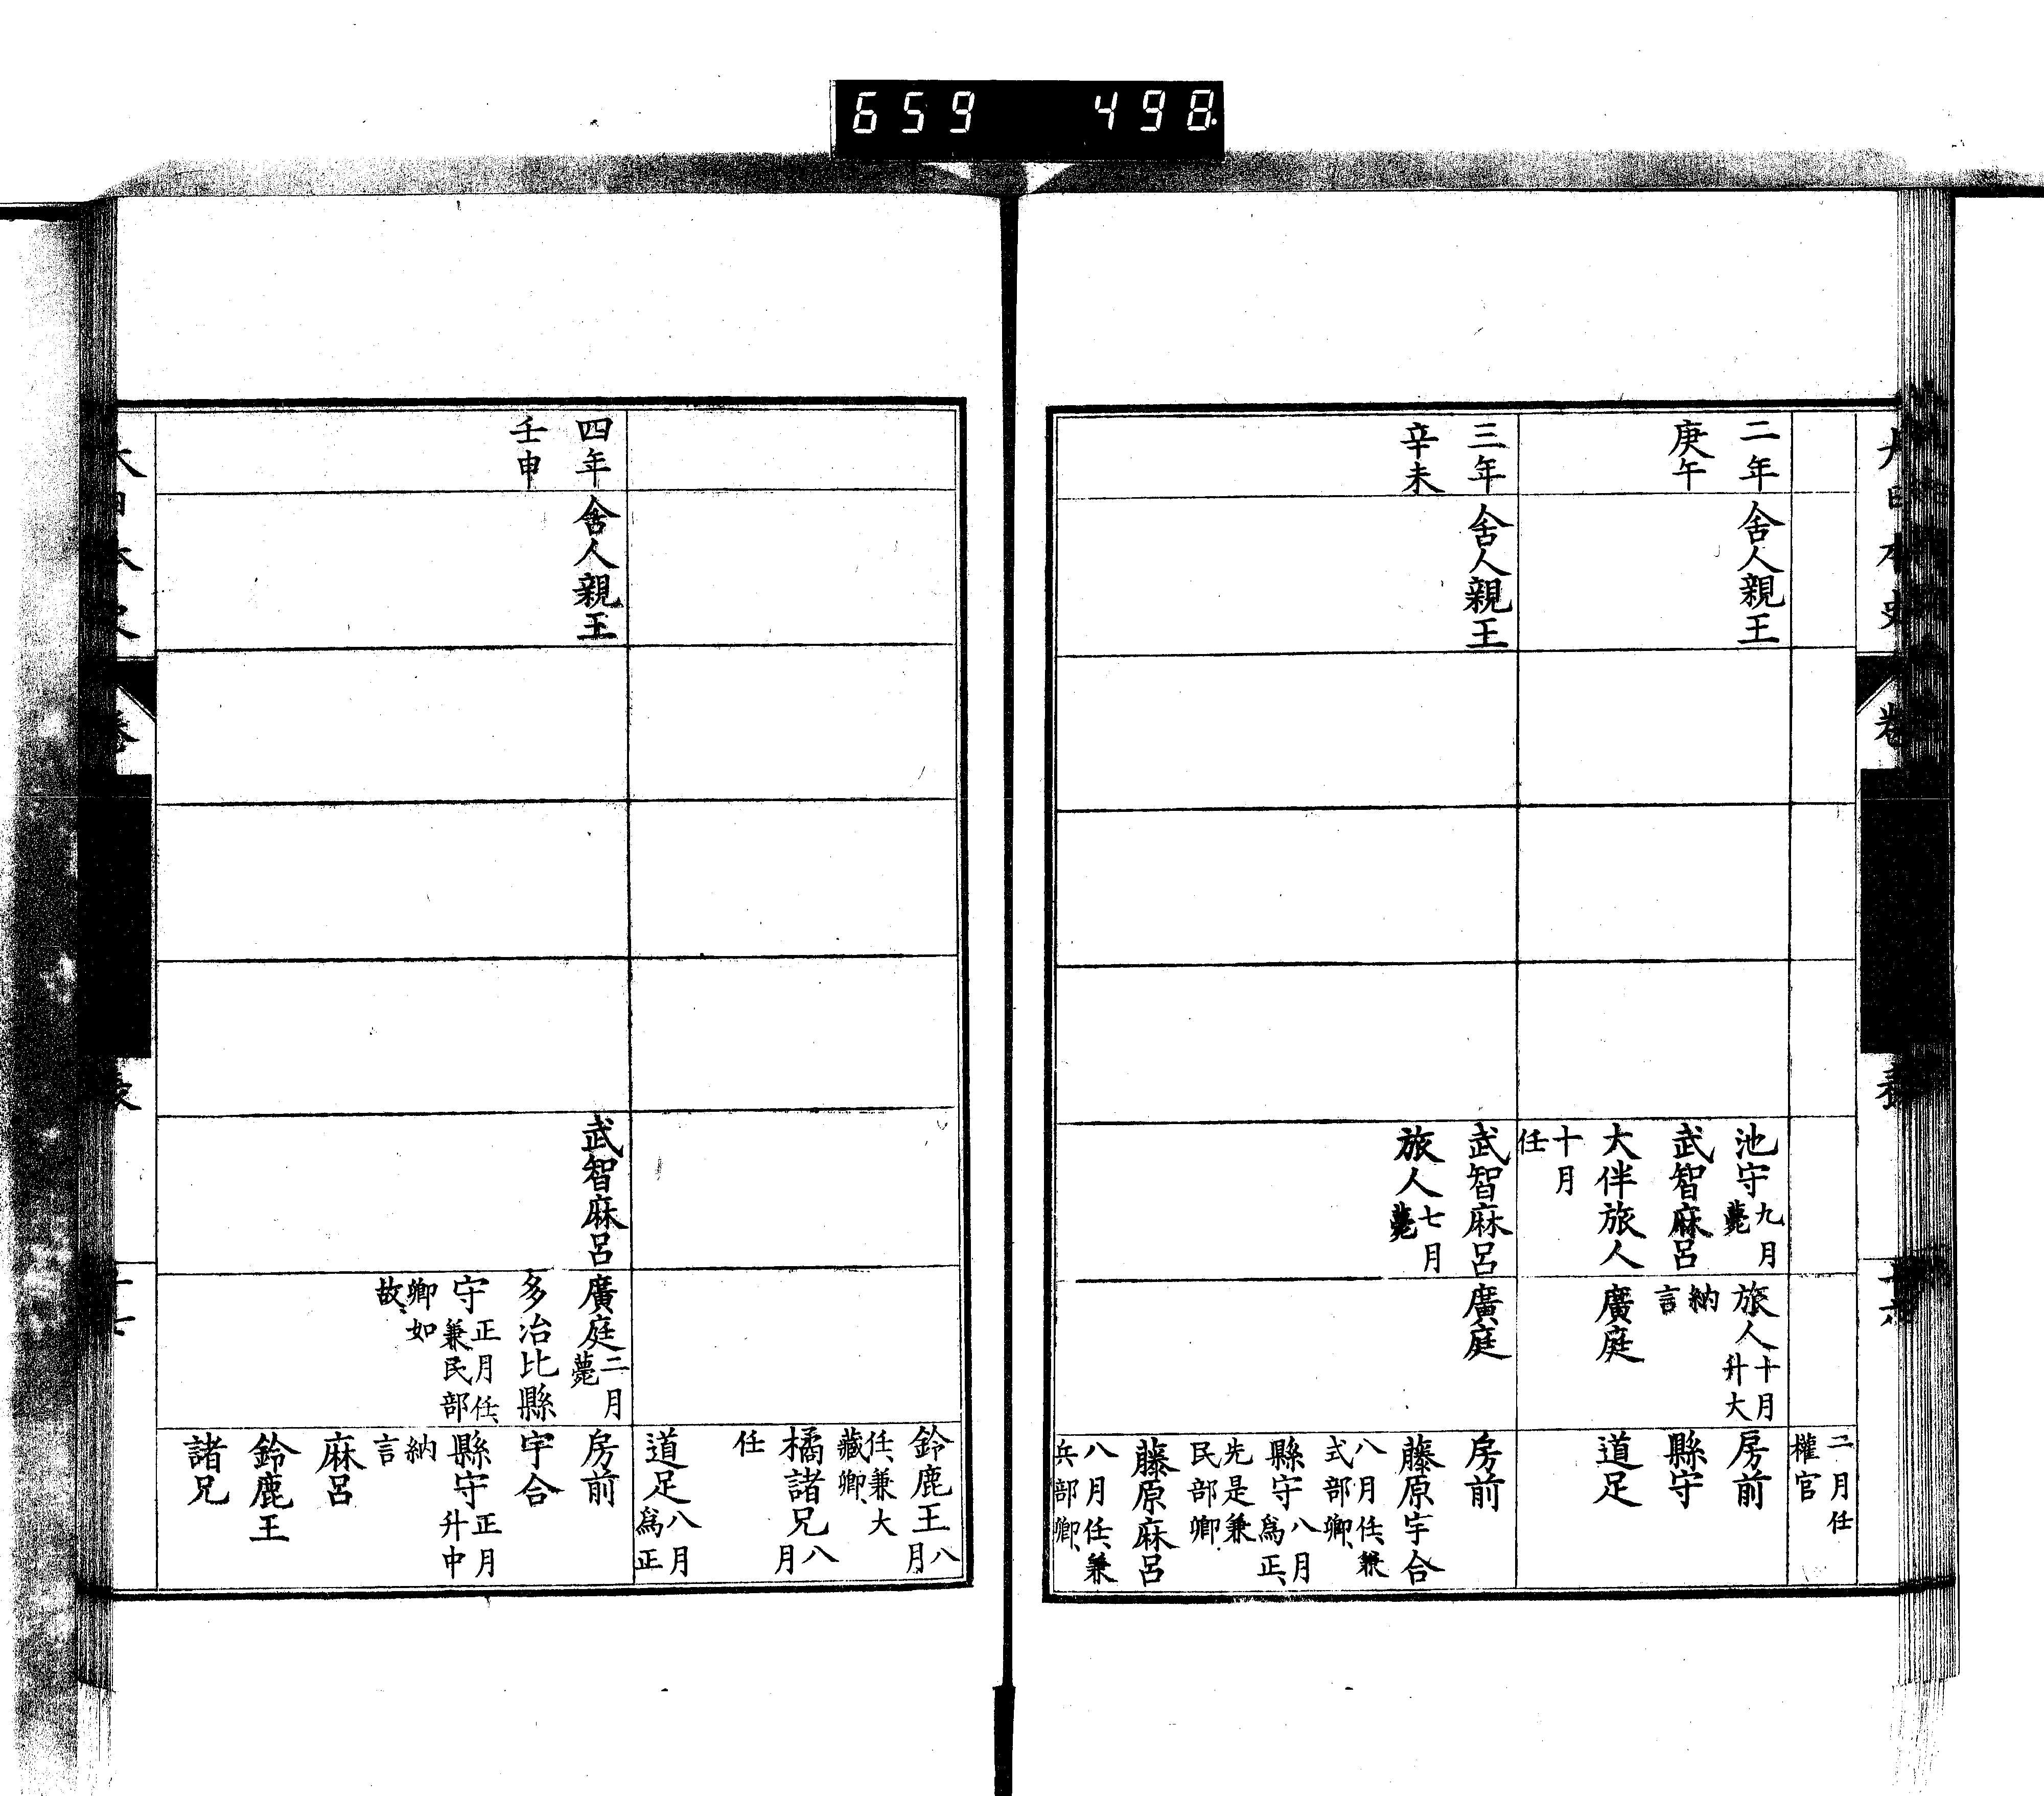 659 498
二月任
權官
二年
庚午
舍人親王
池守九月薨
武智麻呂
大伴旅人
十月任
旅人十月升大
納言
廣庭
房前
縣守
道足
三年
辛未
舍人親王
武智麻呂
旅人七月薨
廣庭
房前
藤原宇合
八月任、兼式部卿、
縣守八月爲正、
先是兼民部卿、
藤原麻呂
八月任、兼兵部卿、
鈴鹿王八月
任、兼大藏卿、
橘諸兄八月
任
道足八月爲正
四年
壬申
舍人親王
武智麻呂
廣庭二月薨
多治比縣
守正月任、兼民部
卿如故、
房前
宇合
縣守正月升中
納言
麻呂
鈴鹿王
諸兄